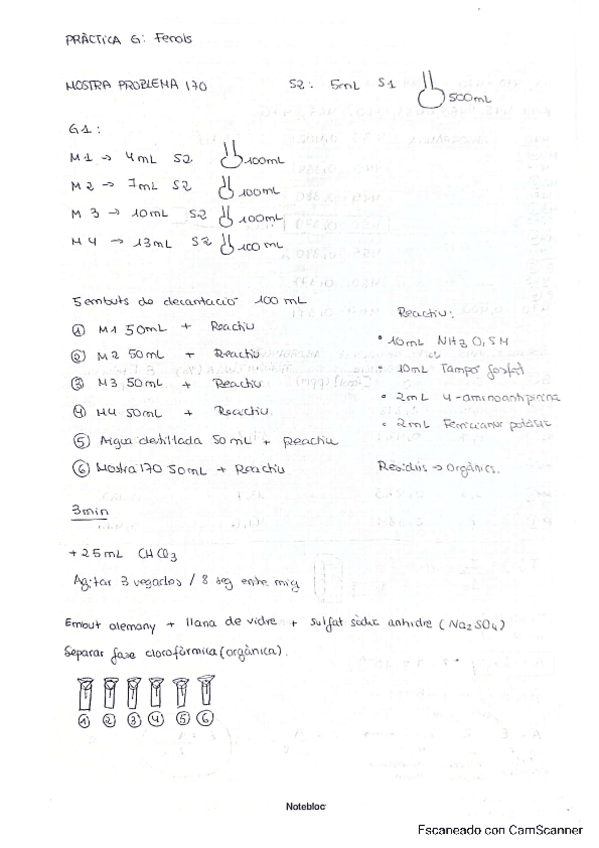 PRÀCTICA 6: Fenols
MOSTRA PROBLEMA 170 S2: 5mL S1 500mL
G1:
M1 → 4mL S2 100mL
M2 → 7mL S2 100mL
M3 → 10mL S2 100mL
M4 → 13mL S2 100mL
5 embuts de decantació 100 mL
Reactiu:
① M1 50mL + Reactiu
② M2 50mL + Reactiu
③ M3 50mL + Reactiu
④ M4 50mL + Reactiu
⑤ Aigua destillada 50mL + Reactiu
⑥ Mostra 170 50mL + Reactiu
• 10mL NH3 0,5M
• 10mL Tampó fosfat
• 2mL 4-aminoantipirina
• 2mL Ferricianur potàssic
Residus → Orgànics.
3min
+ 25mL CHCl3
Agitar 3 vegades / 8 seg entre mig
Embut alemany + llana de vidre + sulfat sòdic anhidre (Na2SO4)
Separar fase clorofòrmica (orgànica).
① ② ③ ④ ⑤ ⑥
Notebloc
Escaneado con CamScanner